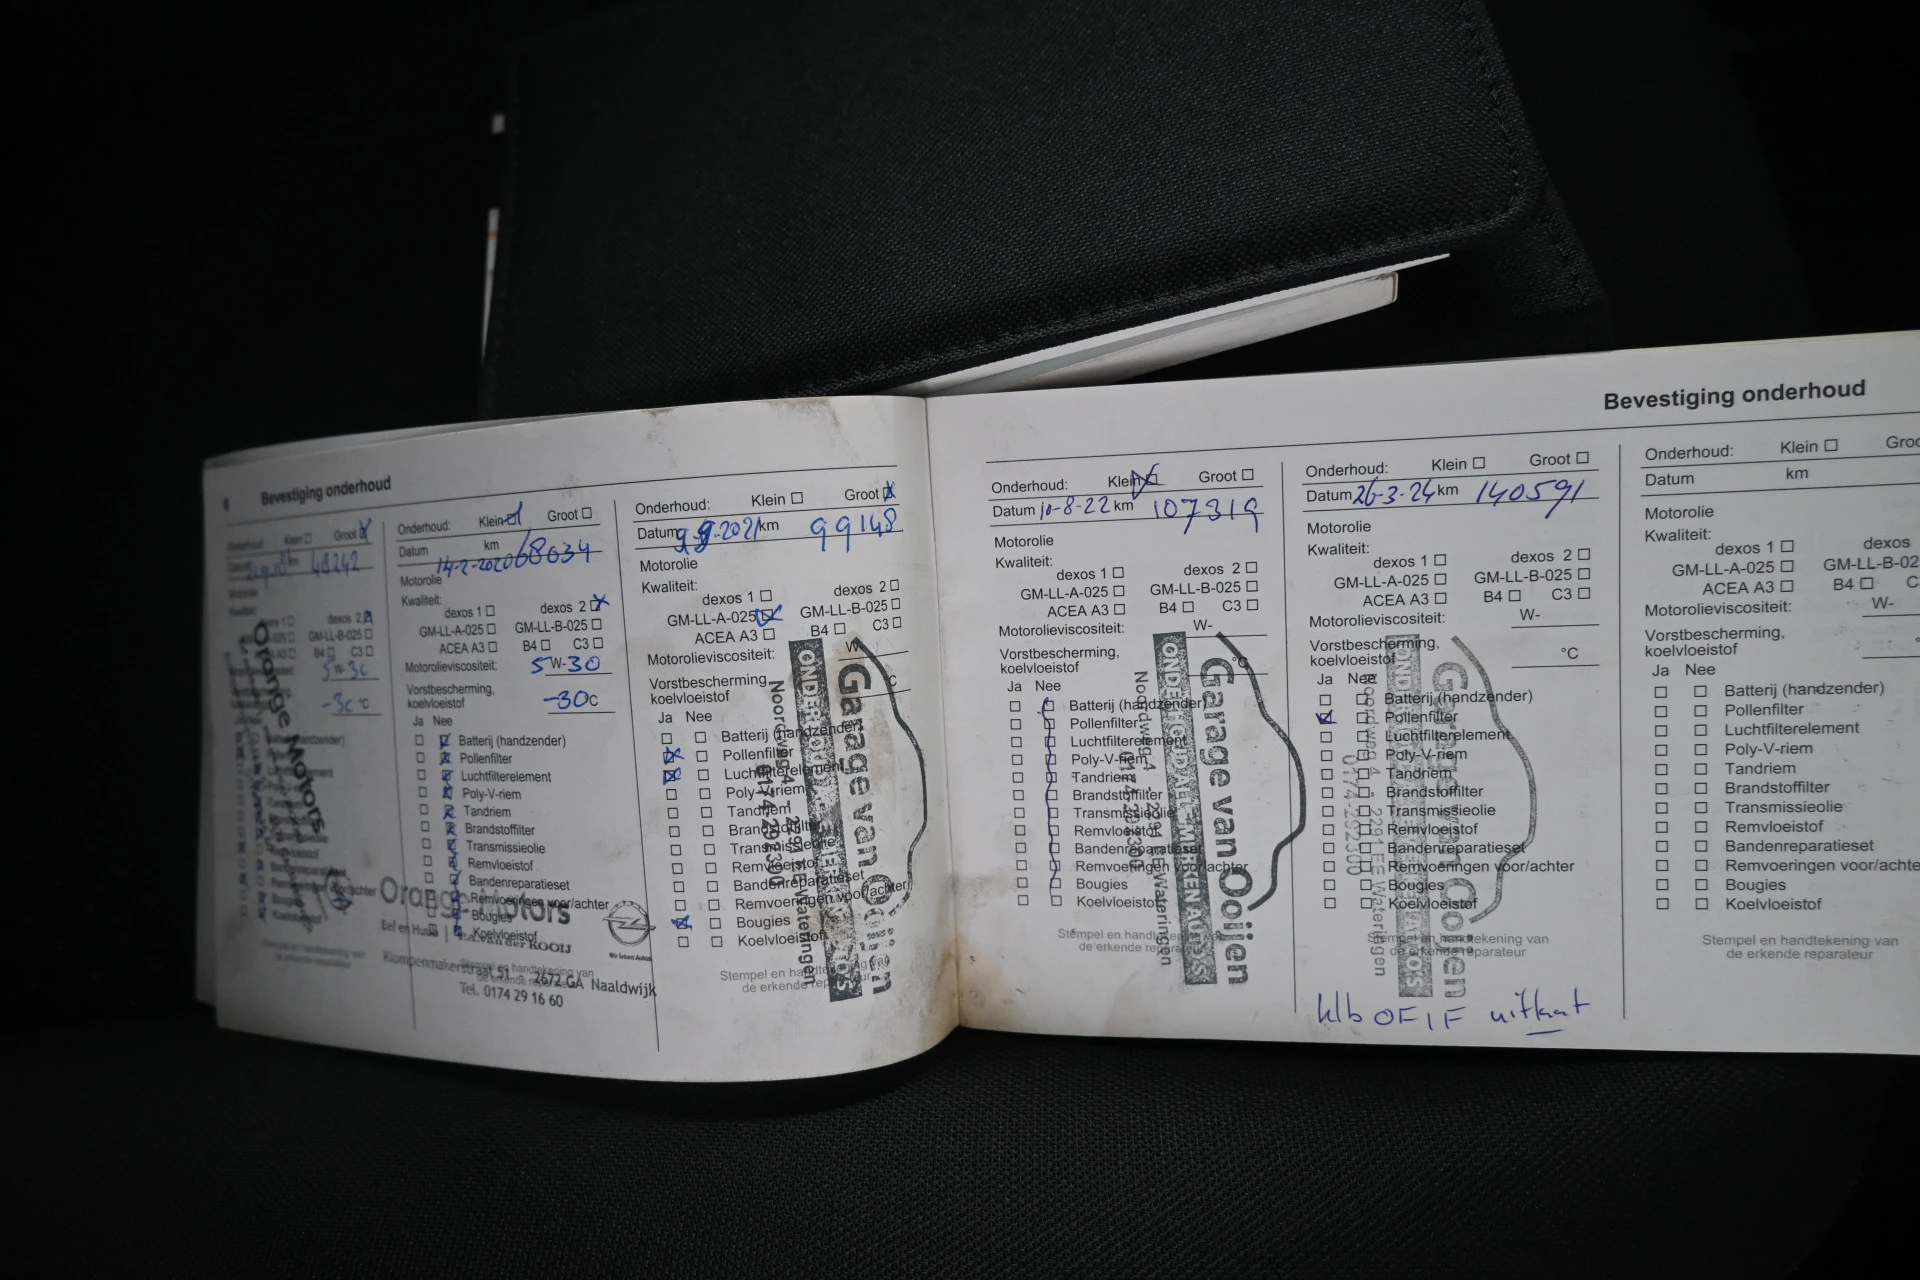 8 Bevestiging onderhoud
Onderhoud: Klein Groot
km 48242
dexos 2
GM-LL-B-025
B4 C3
5W-30
-30 °C
Orange Motors
Onderhoud: Klein Groot
Datum 14-2-2020 km 68034
Motorolie
Kwaliteit:
dexos 1 dexos 2
GM-LL-A-025 GM-LL-B-025
ACEA A3 B4 C3
Motorolieviscositeit: 5W-30
Vorstbescherming,
koelvloeistof -30°C
Ja Nee
Batterij (handzender)
Pollenfilter
Luchtfilterelement
Poly-V-riem
Tandriem
Brandstoffilter
Transmissieolie
Remvloeistof
Bandenreparatieset
Remvoeringen voor/achter
Bougies
Koelvloeistof
Stempel en handtekening van
de erkende reparateur
Orange Motors
Wir leben Autos
Klompenmakerstraat 51 - 2672 GA Naaldwijk
Tel. 0174 29 16 60
Onderhoud: Klein Groot
Datum 9-9-2021 km 99148
Motorolie
Kwaliteit:
dexos 1 dexos 2
GM-LL-A-025 GM-LL-B-025
ACEA A3 B4 C3
Motorolieviscositeit: W-
Vorstbescherming,
koelvloeistof °C
Ja Nee
Batterij (handzender)
Pollenfilter
Luchtfilterelement
Poly-V-riem
Tandriem
Brandstoffilter
Transmissieolie
Remvloeistof
Bandenreparatieset
Remvoeringen voor/achter
Bougies
Koelvloeistof
Stempel en handtekening van
de erkende reparateur
Garage van Ooijen
Bevestiging onderhoud
Onderhoud: Klein Groot
Datum 10-8-22 km 107319
Motorolie
Kwaliteit:
dexos 1 dexos 2
GM-LL-A-025 GM-LL-B-025
ACEA A3 B4 C3
Motorolieviscositeit: W-
Vorstbescherming,
koelvloeistof °C
Ja Nee
Batterij (handzender)
Pollenfilter
Luchtfilterelement
Poly-V-riem
Tandriem
Brandstoffilter
Transmissieolie
Remvloeistof
Bandenreparatieset
Remvoeringen voor/achter
Bougies
Koelvloeistof
Stempel en handtekening van
de erkende reparateur
Garage van Ooijen
ONDERHOUD ALLE MERKEN AUTO'S
Noordweg 4 - 2291 EE Wateringen
0174-292300
Onderhoud: Klein Groot
Datum 26-3-24 km 140591
Motorolie
Kwaliteit:
dexos 1 dexos 2
GM-LL-A-025 GM-LL-B-025
ACEA A3 B4 C3
Motorolieviscositeit: W-
Vorstbescherming,
koelvloeistof °C
Ja Nee
Batterij (handzender)
Pollenfilter
Luchtfilterelement
Poly-V-riem
Tandriem
Brandstoffilter
Transmissieolie
Remvloeistof
Bandenreparatieset
Remvoeringen voor/achter
Bougies
Koelvloeistof
Stempel en handtekening van
de erkende reparateur
Garage van Ooijen
Noordweg 4 - 2291 EE Wateringen
0174-292300
Onderhoud: Klein Groo
Datum km
Motorolie
Kwaliteit:
dexos 1 dexos
GM-LL-A-025 GM-LL-B-02
ACEA A3 B4 C
Motorolieviscositeit: W-
Vorstbescherming,
koelvloeistof
Ja Nee
Batterij (handzender)
Pollenfilter
Luchtfilterelement
Poly-V-riem
Tandriem
Brandstoffilter
Transmissieolie
Remvloeistof
Bandenreparatieset
Remvoeringen voor/achte
Bougies
Koelvloeistof
Stempel en handtekening van
de erkende reparateur